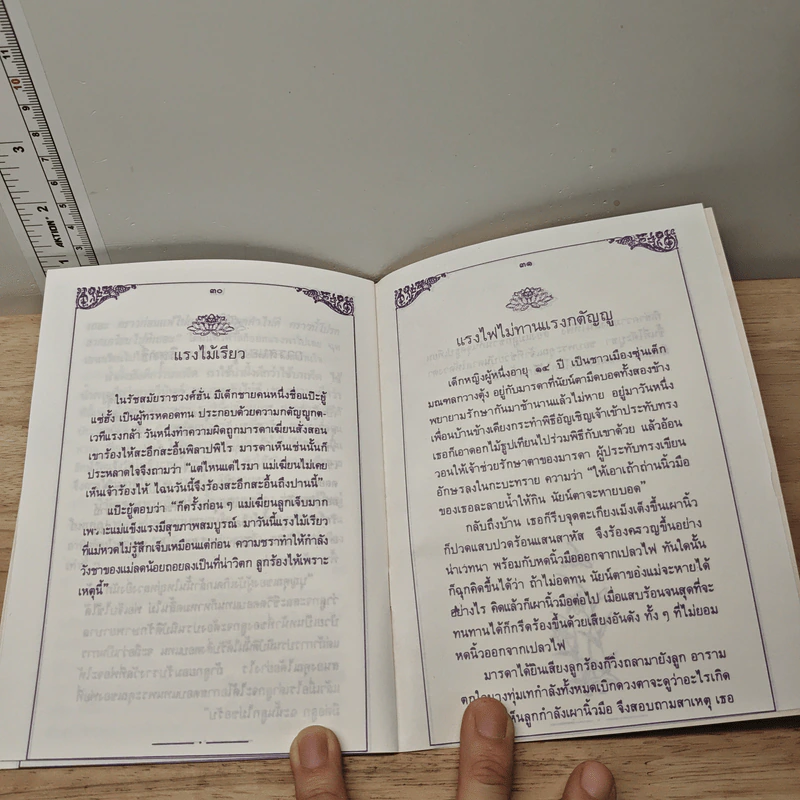 ๓๐
แรงไม้เรียว
ในรัชสมัยราชวงศ์ฮั่น มีเด็กชายคนหนึ่งชื่อแป๊ะยู้
แซ่ฮั้ง เป็นผู้ทรหดอดทน ประกอบด้วยความกตัญญูกต-
เวทีแรงกล้า วันหนึ่งทำความผิดถูกมารดาเฆี่ยนสั่งสอน
เขาร้องไห้สะอึกสะอื้นพิลาปพิไร มารดาเห็นเช่นนั้นก็
ประหลาดใจจึงถามว่า “แต่ไหนแต่ไรมา แม่เฆี่ยนไม่เคย
เห็นเจ้าร้องไห้ ไฉนวันนี้จึงร้องสะอึกสะอื้นถึงปานนี้”
แป๊ะยู้ตอบว่า “ก็ครั้งก่อน ๆ แม่เฆี่ยนลูกเจ็บมาก
เพราะแม่แข็งแรงมีสุขภาพสมบูรณ์ มาวันนี้แรงไม้เรียว
ที่แม่หวดไม่รู้สึกเจ็บเหมือนแต่ก่อน ความชราทำให้กำลัง
วังชาของแม่ลดน้อยถอยลงเป็นที่น่าวิตก ลูกร้องไห้เพราะ
เหตุนี้”
๓๑
แรงไฟไม่ทานแรงกตัญญู
เด็กหญิงผู้หนึ่งอายุ ๑๔ ปี เป็นชาวเมืองซุ่นเต็ก
มณฑลกวางตุ้ง อยู่กับมารดาที่นัยน์ตามืดบอดทั้งสองข้าง
พยายามรักษากันมาช้านานแล้วไม่หาย อยู่มาวันหนึ่ง
เพื่อนบ้านข้างเคียงกระทำพิธีอัญเชิญเจ้าเข้าประทับทรง
เธอก็เอาดอกไม้ธูปเทียนไปร่วมพิธีกับเขาด้วย แล้วอ้อน
วอนให้เจ้าช่วยรักษาตาของมารดา ผู้ประทับทรงเขียน
อักษรลงในกะบะทราย ความว่า “ให้เอาเถ้าถ่านนิ้วมือ
ของเธอละลายน้ำให้กิน นัยน์ตาจะหายบอด”
กลับถึงบ้าน เธอก็รีบจุดตะเกียงเม้งเต็งขึ้นเผานิ้ว
ก็ปวดแสบปวดร้อนแสนสาหัส จึงร้องครวญขึ้นอย่าง
น่าเวทนา พร้อมกับหดนิ้วมือออกจากเปลวไฟ ทันใดนั้น
ก็ฉุกคิดขึ้นได้ว่า ถ้าไม่อดทน นัยน์ตาของแม่จะหายได้
อย่างไร คิดแล้วก็เผานิ้วมือต่อไป เมื่อแสบร้อนจนสุดที่จะ
ทนทานได้ก็กรีดร้องขึ้นด้วยเสียงอันดัง ทั้ง ๆ ที่ไม่ยอม
หดนิ้วออกจากเปลวไฟ
มารดาได้ยินเสียงลูกร้องก็วิ่งถลามายังลูก อาราม
ตกใจนางทุ่มเทกำลังทั้งหมดเบิกดวงตาจะดูว่าอะไรเกิด
เห็นลูกกำลังเผานิ้วมือ จึงสอบถามสาเหตุ เธอ